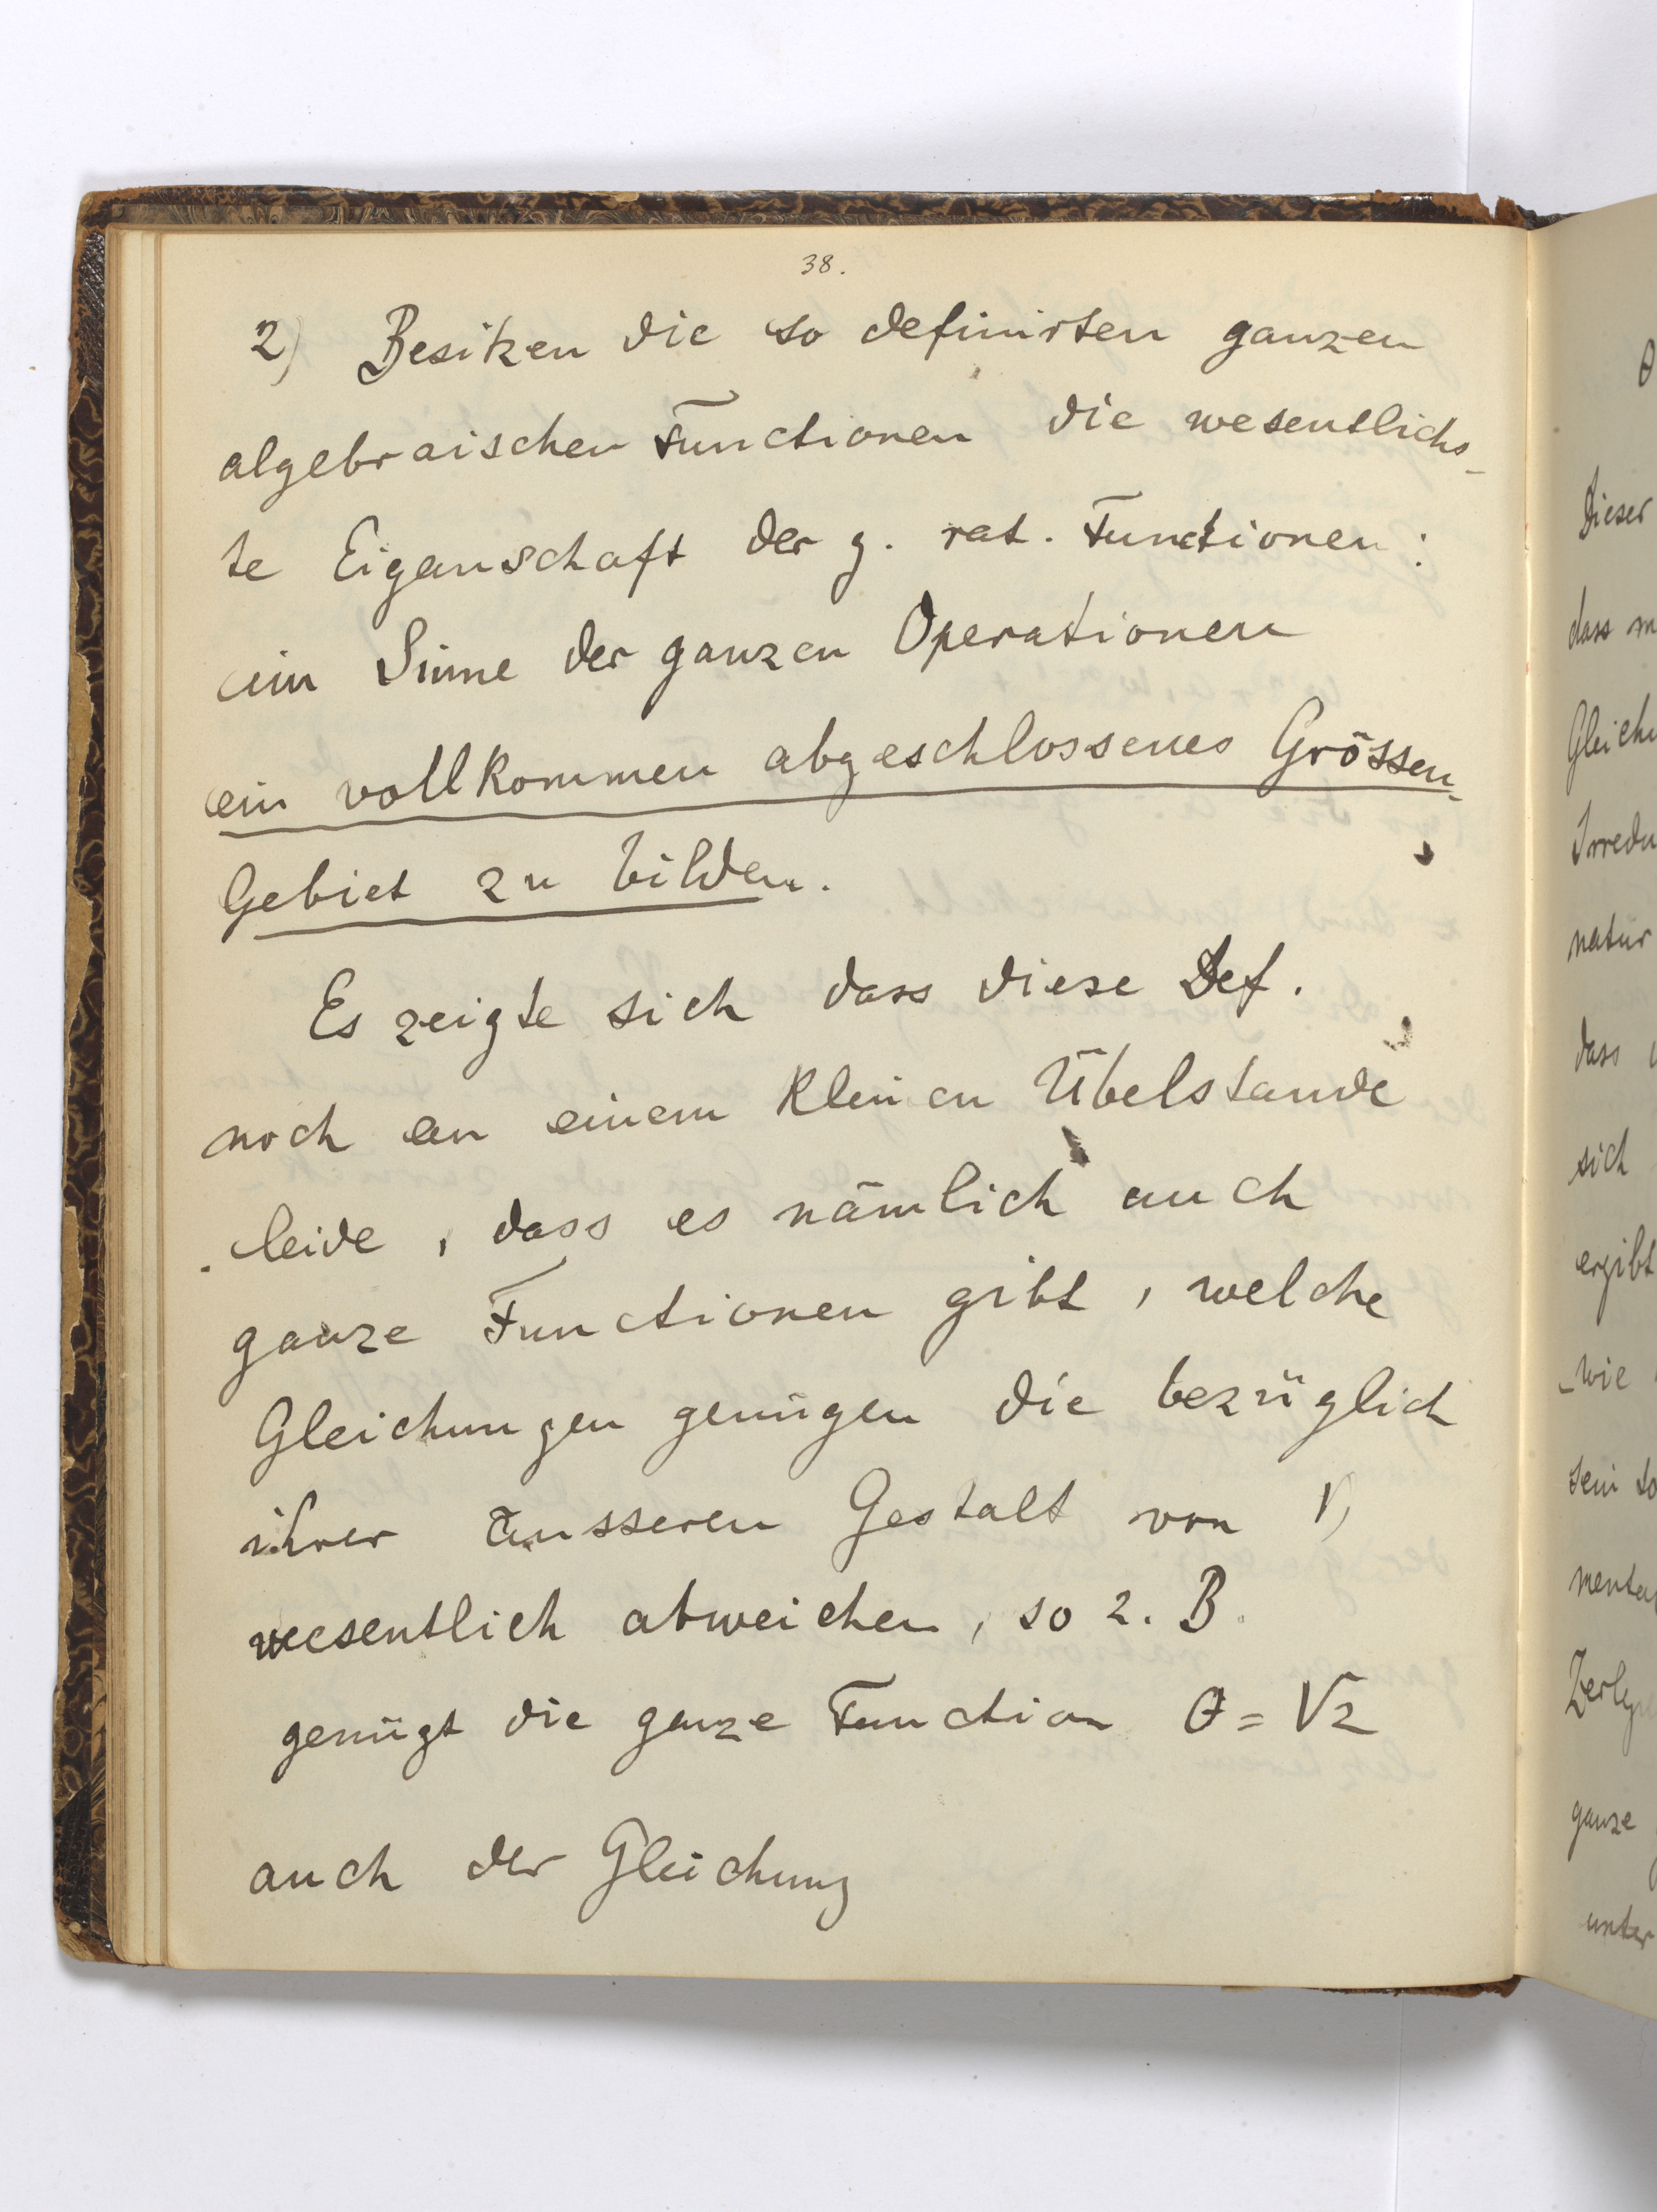 38.
2) Besitzen die so definirten ganzen
algebraischen Functionen die wesentlichs-
te Eigenschaft der g. rat. Functionen:
im Sinne der ganzen Operationen
ein vollkommen abgeschlossenes Grössen-
Gebiet zu bilden.
Es zeigte sich dass diese Def.
noch an einem kleinen Übelstande
leide, dass es nämlich auch
ganze Functionen gibt, welche
Gleichungen genügen die bezüglich
ihrer äusseren Gestalt von 1)
wesentlich abweichen, so z. B.
genügt die ganze Function θ = √z
auch der Gleichung
θ
Dieser
dass
Gleich
Irredu
natür
dass
sich
ergibt
wie
sein so
menta
Zerleg
ganze
unter